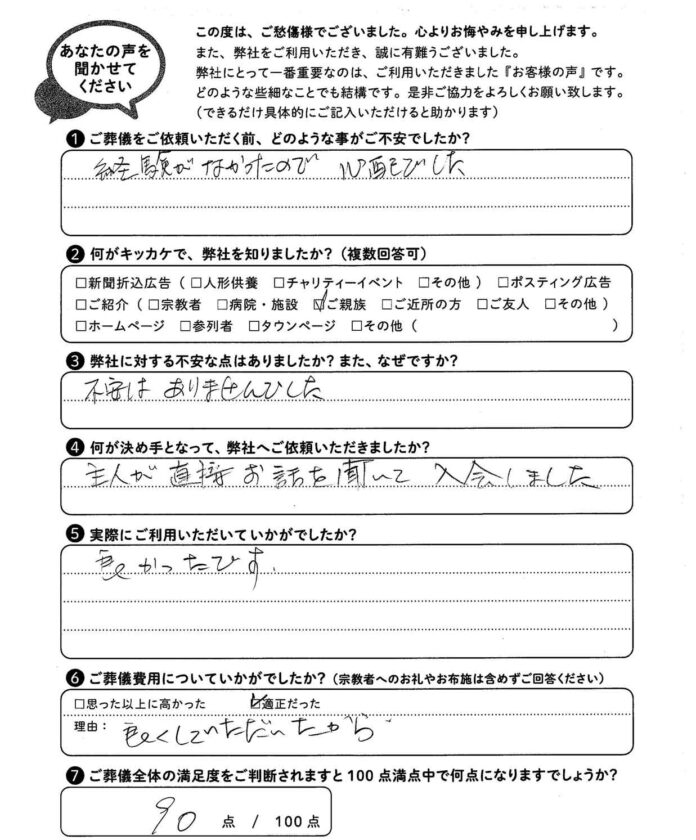 あなたの声を
聞かせて
ください
この度は、ご愁傷様でございました。心よりお悔やみを申し上げます。
また、弊社をご利用いただき、誠に有難うございました。
弊社にとって一番重要なのは、ご利用いただきました『お客様の声』です。
どのような些細なことでも結構です。是非ご協力をよろしくお願い致します。
（できるだけ具体的にご記入いただけると助かります）
❶ご葬儀をご依頼いただく前、どのような事がご不安でしたか？
経験がなかったので 心配でした
❷何がキッカケで、弊社を知りましたか？（複数回答可）
□新聞折込広告（□人形供養 □チャリティーイベント □その他）□ポスティング広告
□ご紹介（□宗教者 □病院・施設 ☑ご親族 □ご近所の方 □ご友人 □その他）
□ホームページ □参列者 □タウンページ □その他（ ）
❸弊社に対する不安な点はありましたか？また、なぜですか？
不安は ありませんでした
❹何が決め手となって、弊社へご依頼いただきましたか？
主人が 直接 お話を聞いて 入会しました
❺実際にご利用いただいていかがでしたか？
良かったです.
❻ご葬儀費用についていかがでしたか？（宗教者へのお礼やお布施は含めずご回答ください）
□思った以上に高かった ☑適正だった
理由： 良くしていただいたから
❼ご葬儀全体の満足度をご判断されますと100点満点中で何点になりますでしょうか？
90 点 / 100点